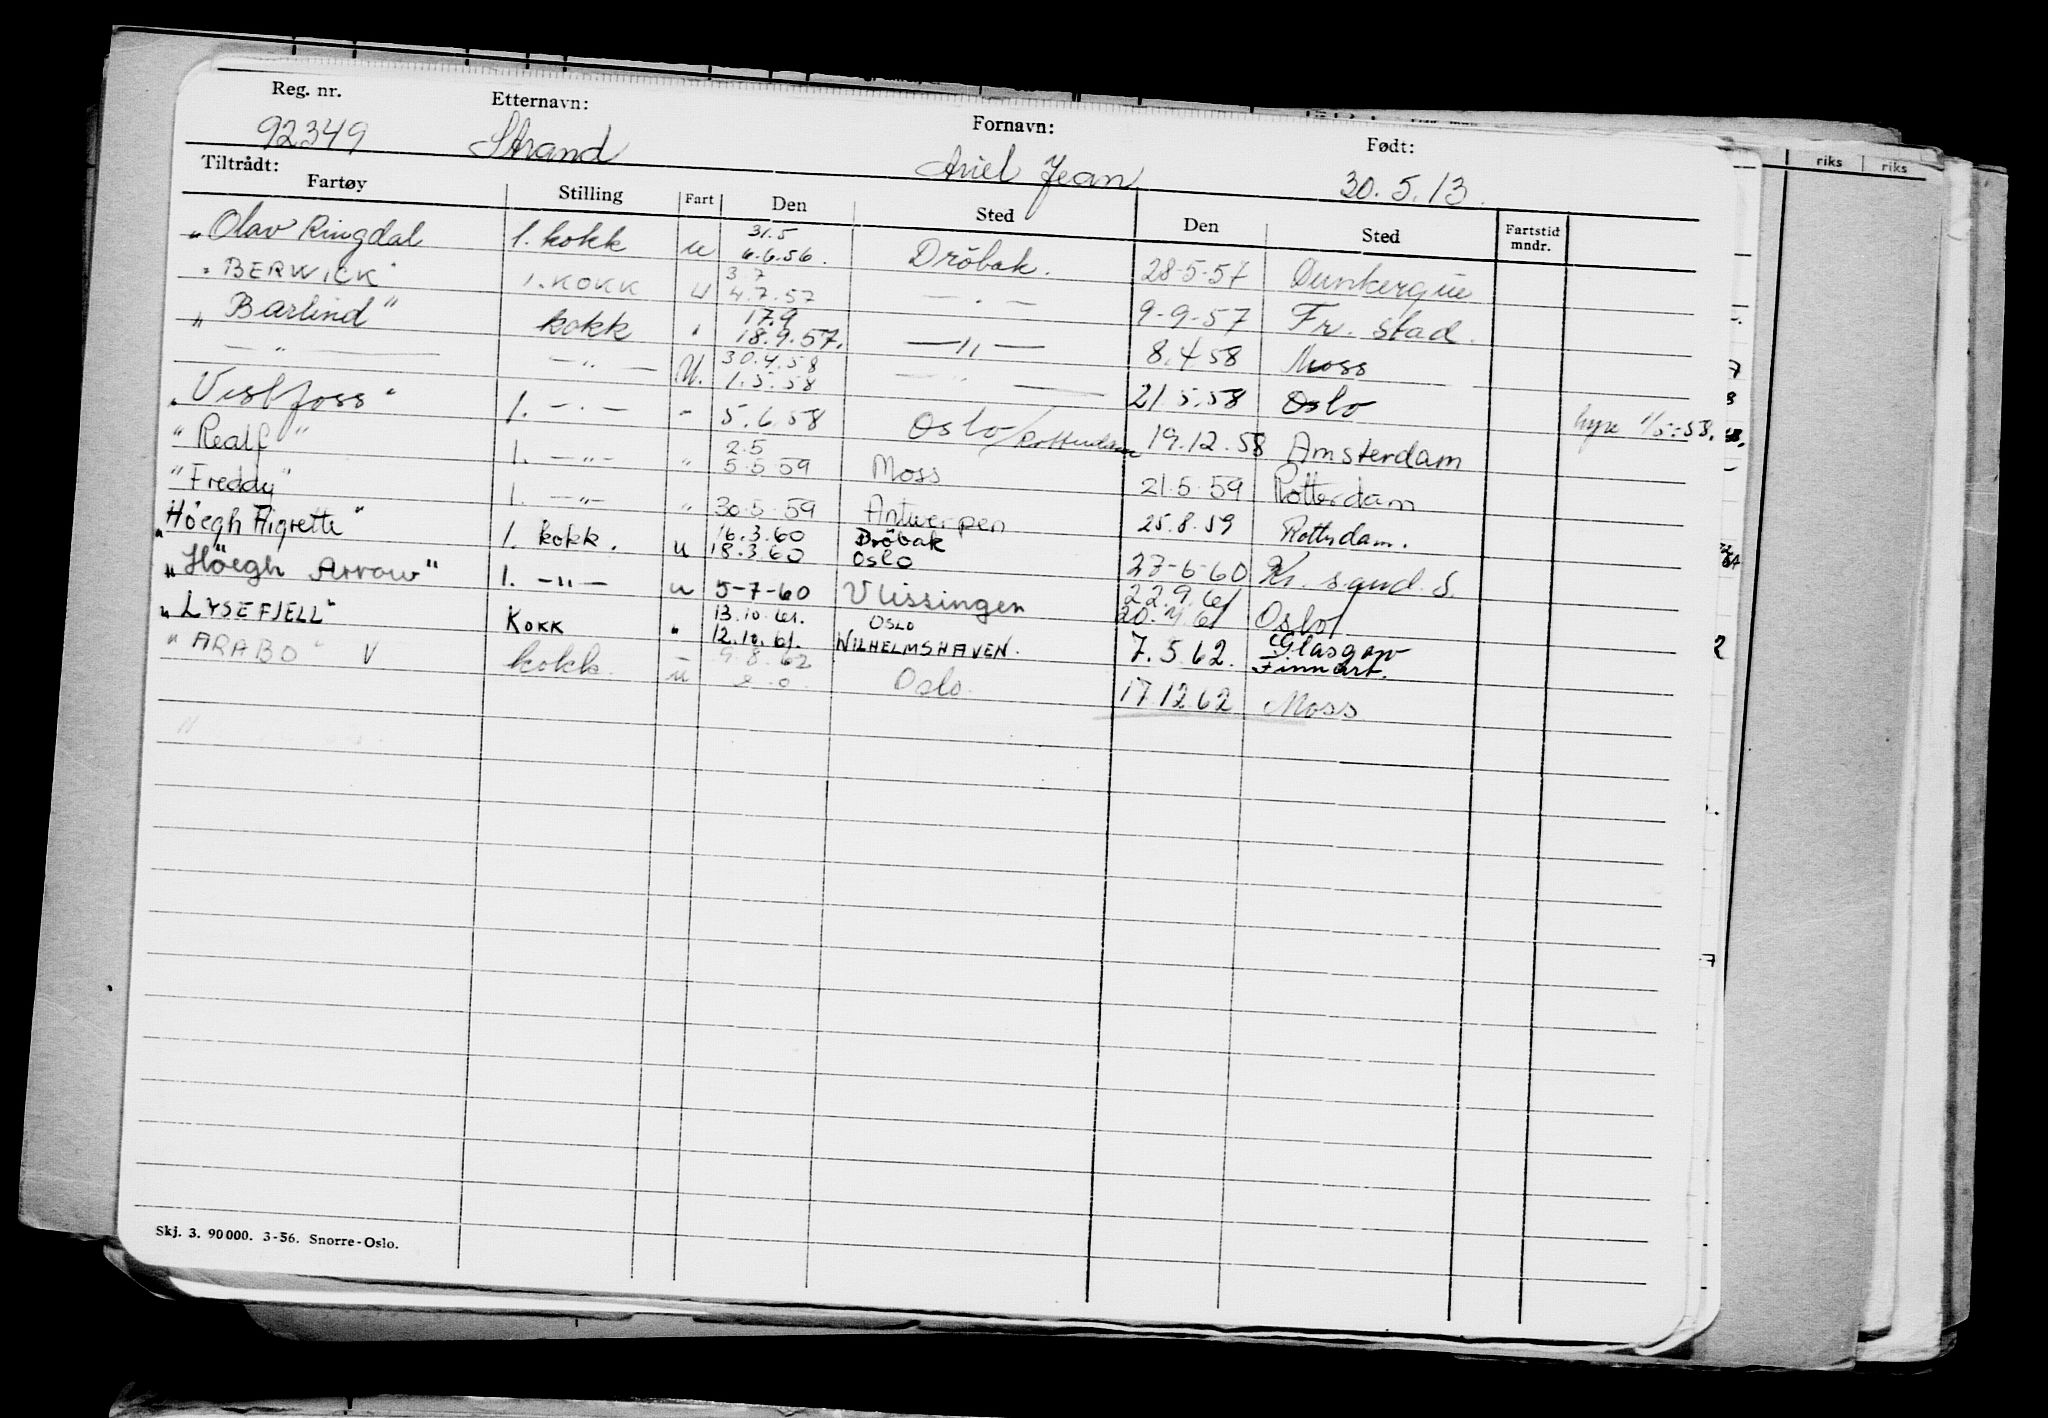 riks riks
Reg. nr. Etternavn: Fornavn: Født:
92349 Strand Ariel Jean 30.5.13.
Tiltrådt:
Fartøy Stilling Fart Den Sted Den Sted Fartstid mndr.
31.5
"Olav Ringdal 1. kokk u 6.6.56. Dröbak. 28-5-57 Dunkerque
3 7
"BERWICK" 1. KOKK U 4.7.57 — " — 9-9-57 Fr. stad.
17.9
"Barlind" kokk " 18.9.57. — " — 8.4 58 Moss
30.4.58
— " — — " — U. 1.5.58 — " — 21 5.58 Oslo
"Vestfoss" 1. — " — " 5.6.58 Oslo/Rotterdam 19.12.58 Amsterdam hyre 1/5-58.
2.5
"Realf" 1. — " — " 5.5.59 Moss 21.5.59 Rotterdam
"Freddy" 1. — " — " 30.5.59 Antwerpen 25.8.59 Rotterdam.
16.3.60 Dröbak
"Höegh Aigrette" 1. kokk. u 18.3.60 OSLO 27-6-60 Kr. sand. S.
22.9.61
"Höegh Arrow" 1. — " — u 5-7-60 Vlissingen 20. 61 Oslo
13.10.61. OSLO Glasgow
"LYSEFJELL" KOKK " 12.10.61. WILHELMSHAVEN. 7.5.62. Finnart.
9.8.62
"ARABO" V kokk. u Oslo. 17.12.62 Moss
2
Skj. 3. 90000. 3-56. Snorre-Oslo.